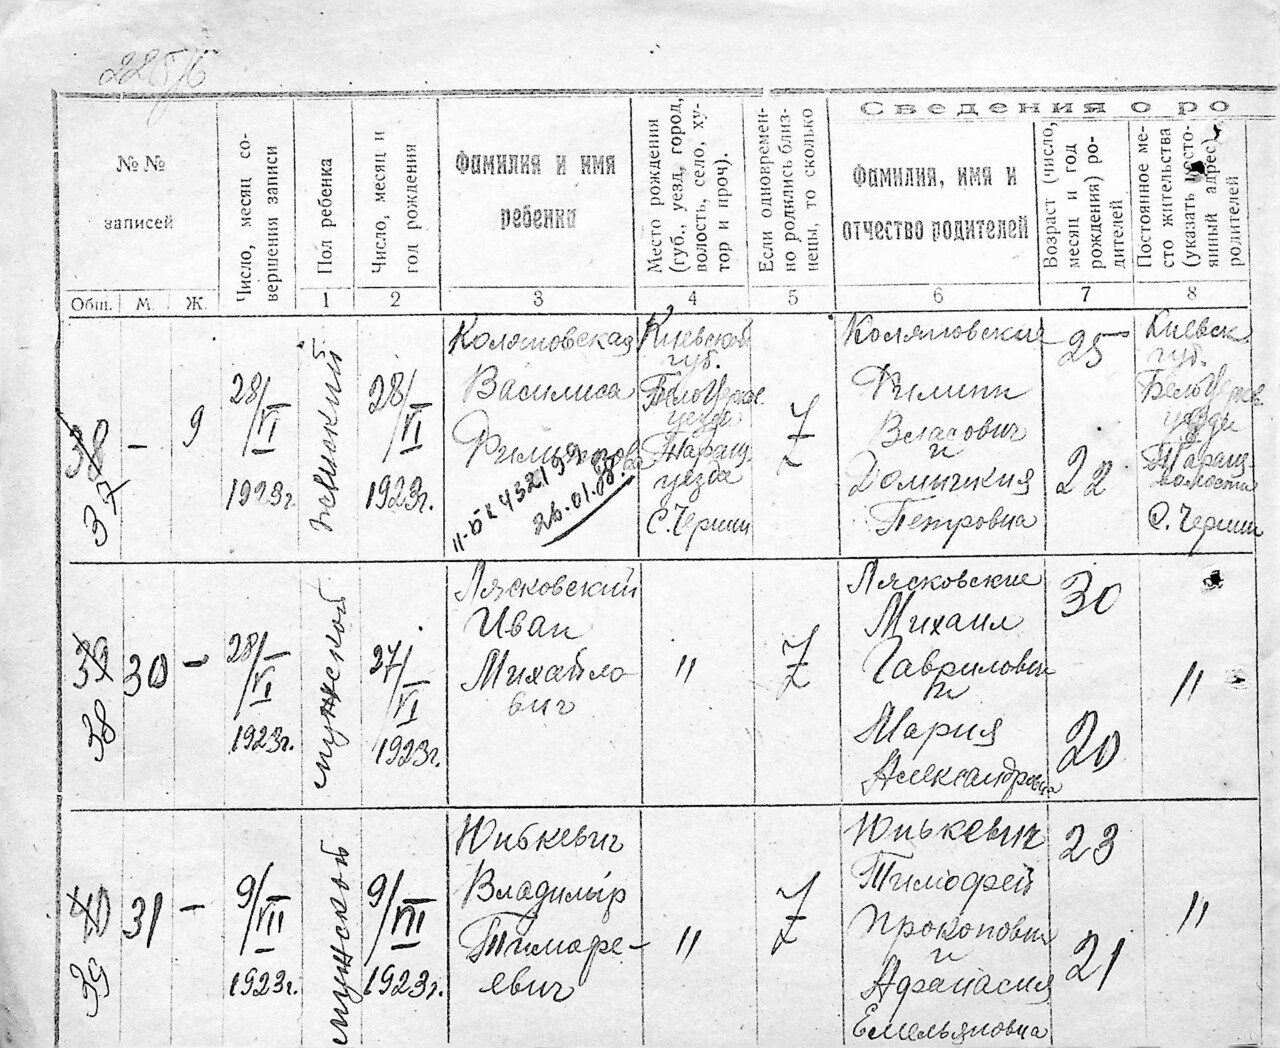 225/6
Сведения о ро
№№
записей
Число, месяц со-
вершения записи
Пол ребенка
Число, месяц и
год рождения
Фамилия и имя
ребенка
Место рождения
(губ., уезд, город,
волость, село, ху-
тор и проч).
Если одновремен-
но родились близ-
нецы, то сколько
Фамилия, имя и
отчество родителей
Возраст (число,
месяц и год
рождения) ро-
дителей
Постоянное ме-
сто жительства
(указать место-
янный адрес)
родителей
Общ. М. Ж. 1 2 3 4 5 6 7 8
38
37
—
9
28/VI
1923г.
женский
28/VI
1923г.
Коляновская
Василиса
Киевской
губ.
БелоЦерков
уезда
Таращ.
уезда
С. Черпин
26.01.88.
Z
Коляновские
Филипп
Власович
и
Домникия
Петровна
25
22
Киевск
губ.
БелоЦерков
уезда
Таращ-
волости
С. Черпин
39
38
30
—
28/VI
1923г.
мужской
27/VI
1923г.
Лясковский
Иван
Михайло-
вич
"
Z
Лясковские
Михаил
Гаврилович
и
Мария
Александровна
30
20
"
40
39
31
—
9/VII
1923г.
мужской
9/VII
1923г.
Юнькевич
Владимір
Тимофе-
евич
"
Z
Юнькевич
Тимофей
Прокопович
и
Афанасия
Емельяновна
23
21
"